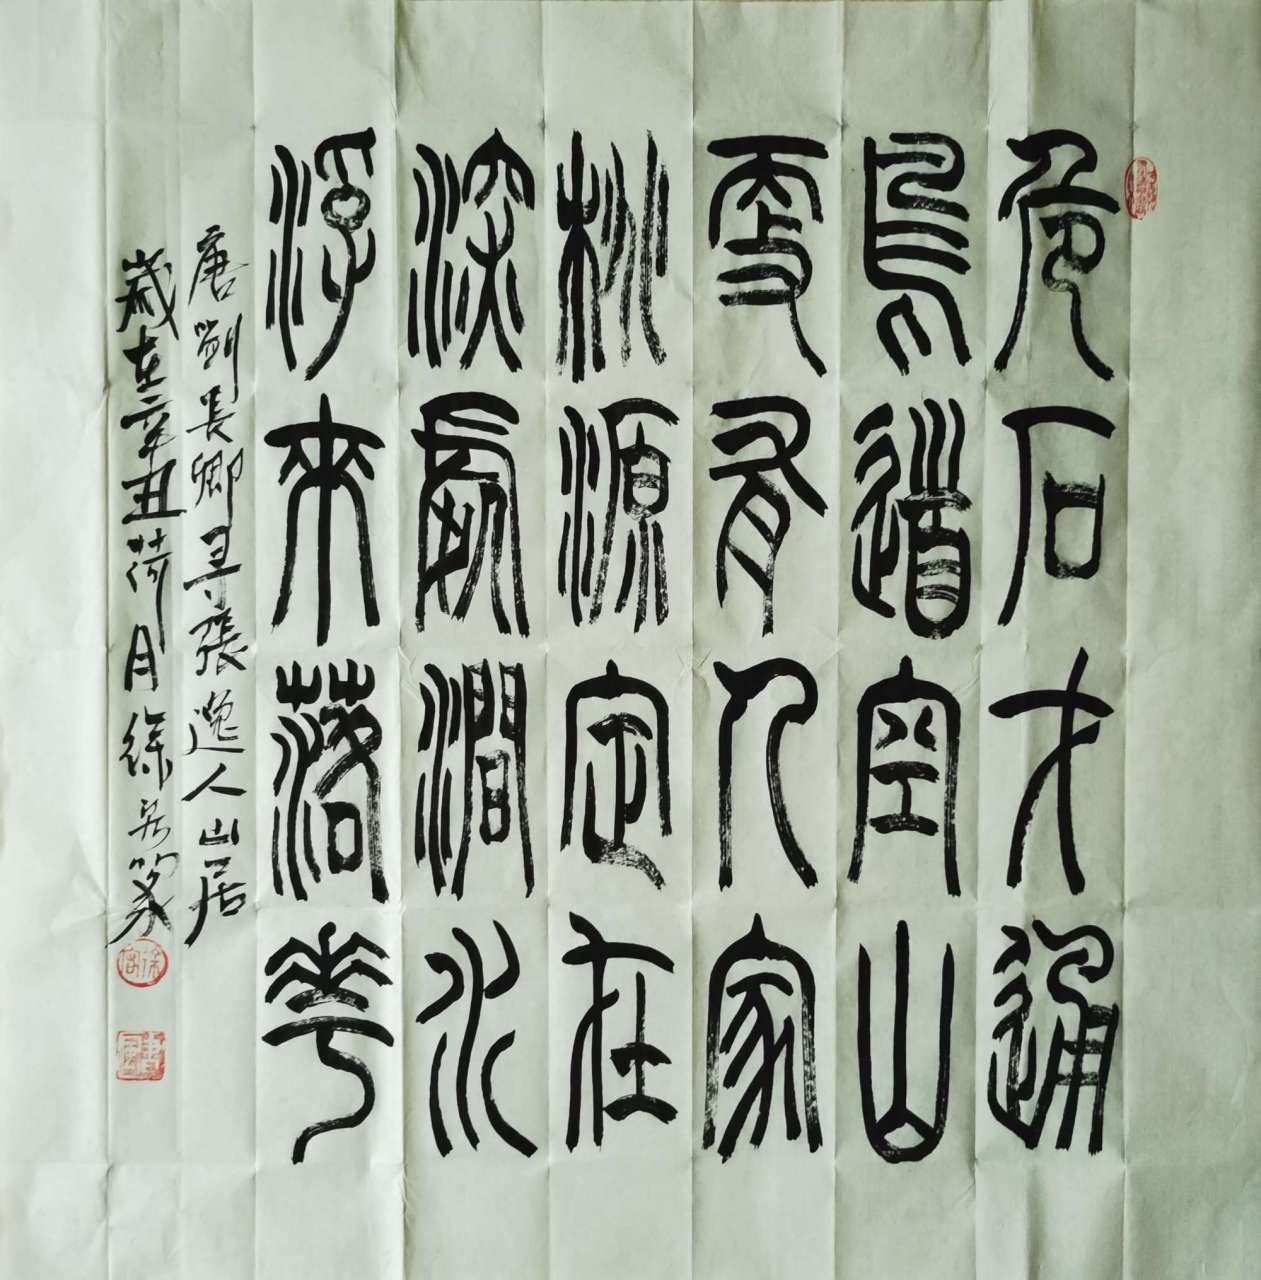 危石才通
鳥道空山
更有人家
桃源定在
深處澗水
浮來落花
唐劉長卿尋張逸人山居
歲在辛丑荷月徐篆